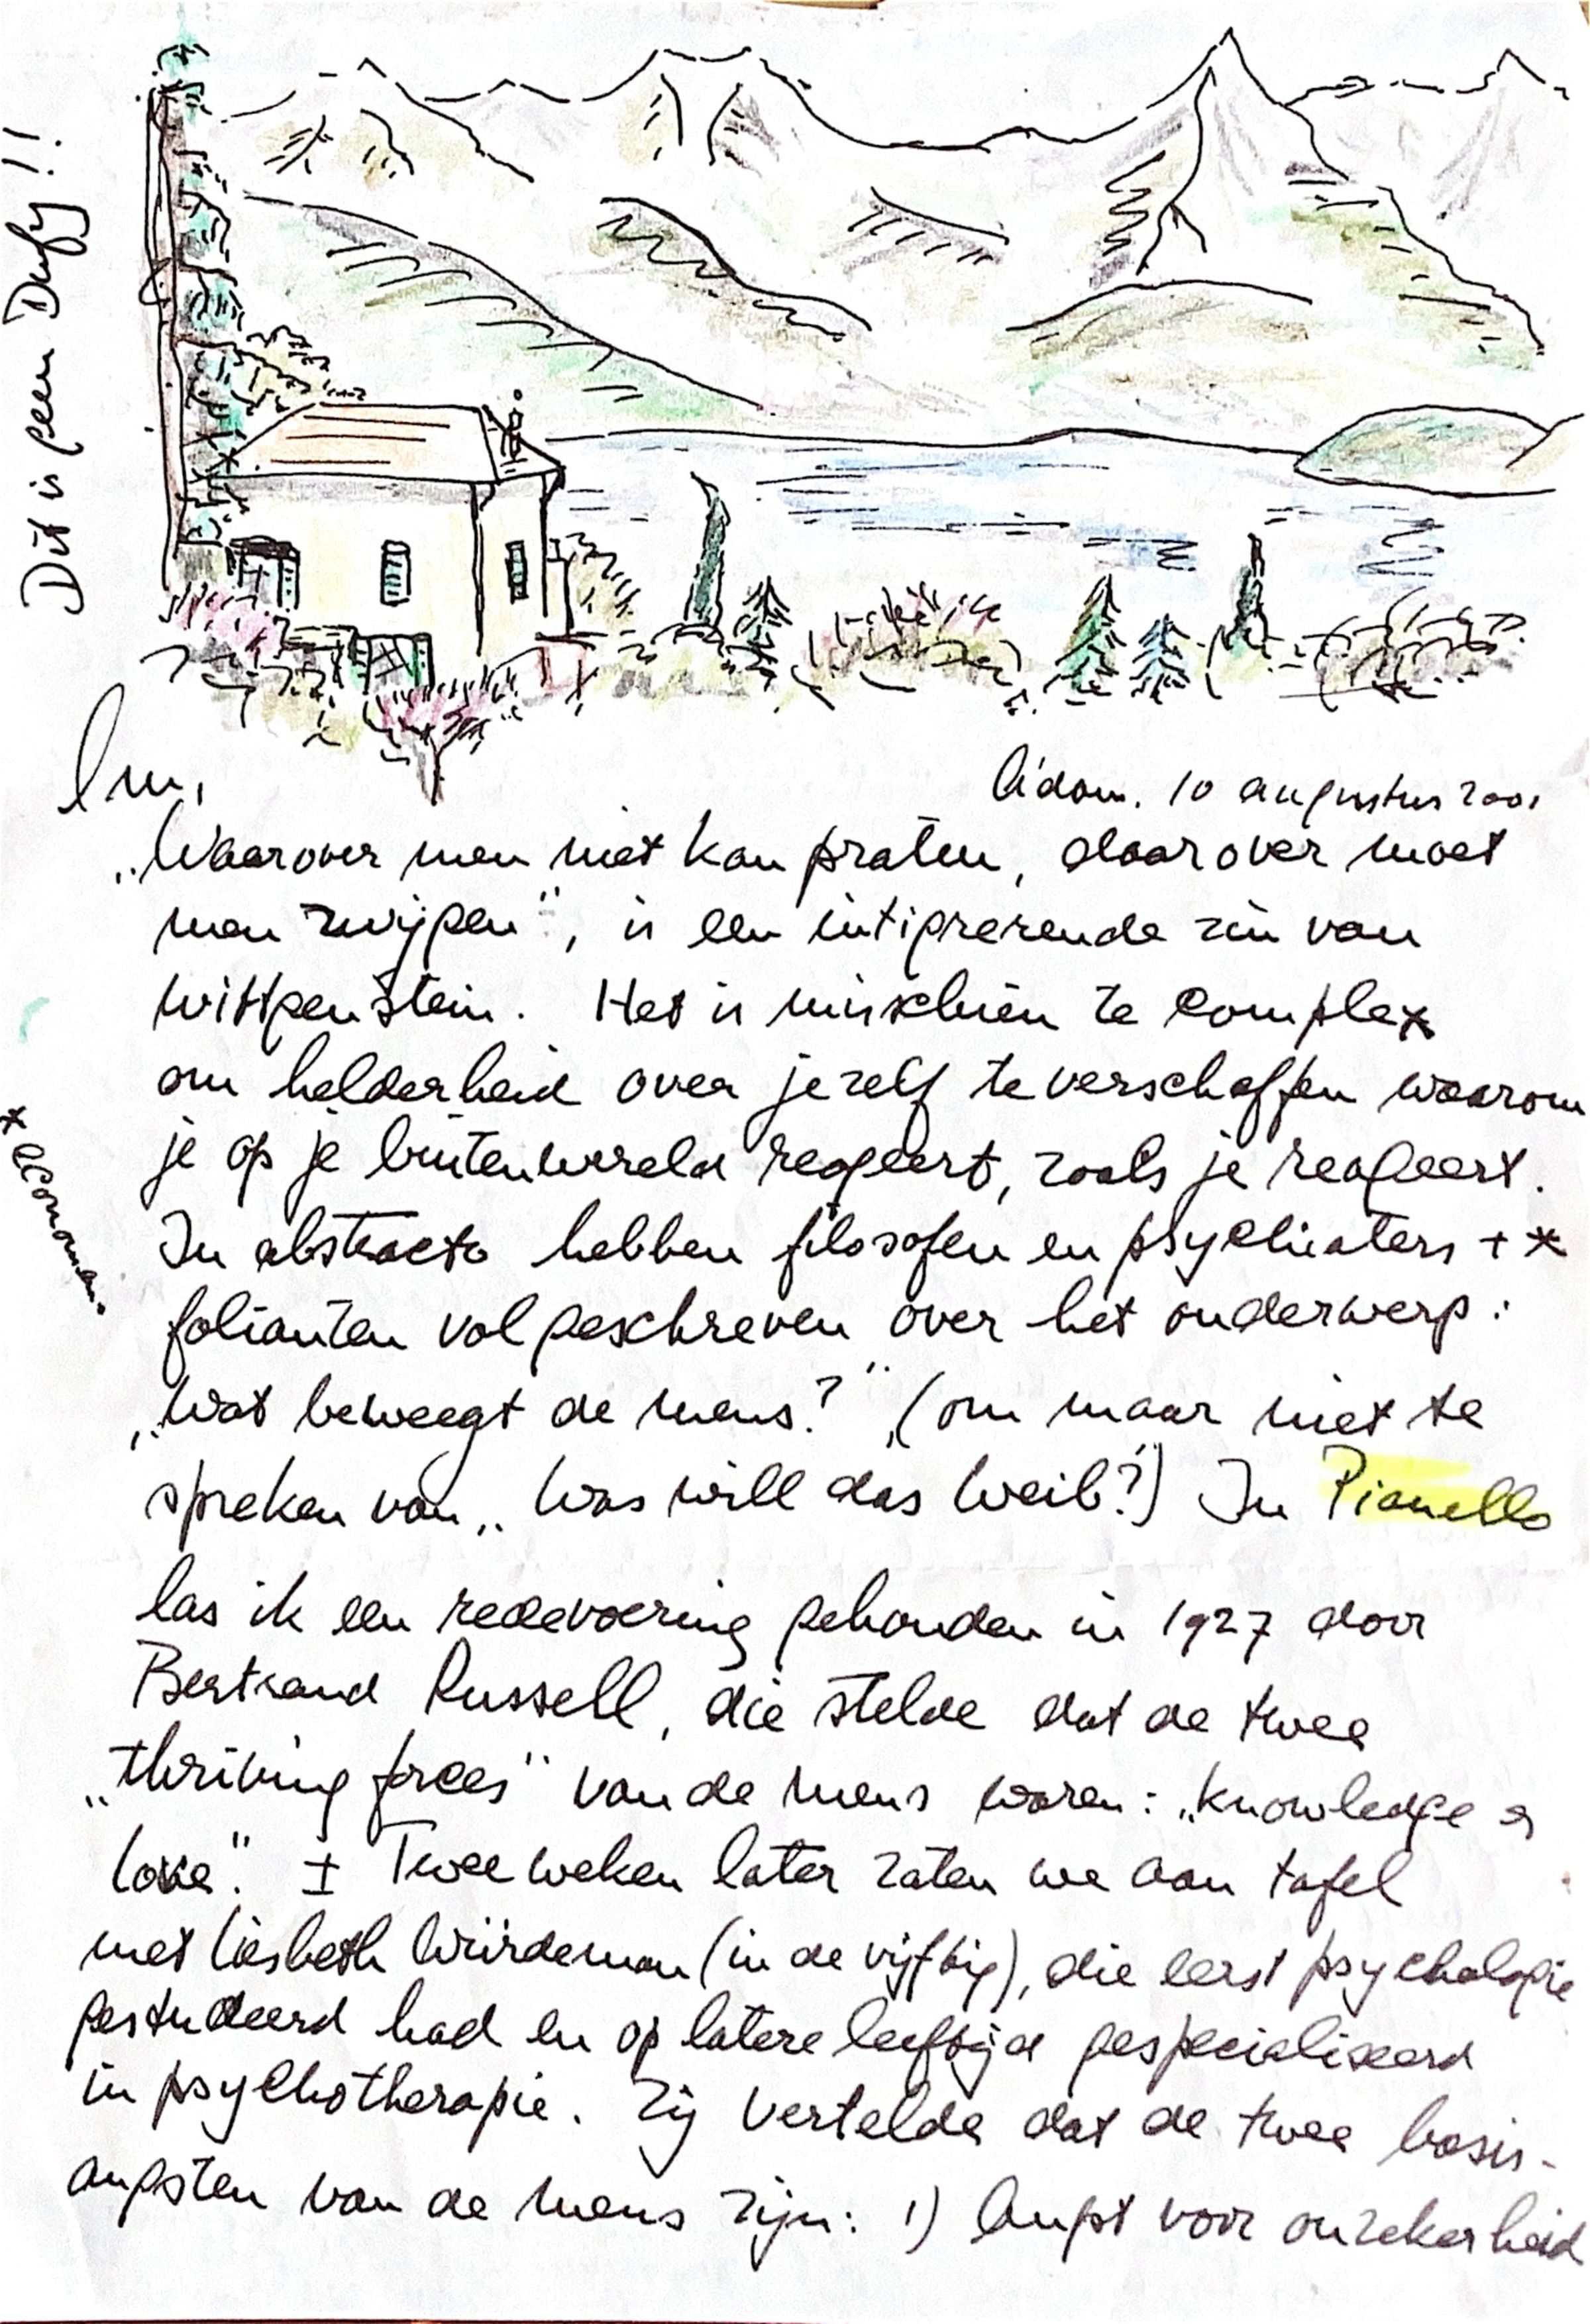 Dit is geen Dufy!!
A'dam. 10 augustus 2001
„Waarover men niet kan praten, daarover moet
men zwijgen", is een intigrerende zin van
Wittgenstein. Het is misschien te complex
om helderheid over jezelf te verschaffen waarom
je op je buitenwereld reageert, zoals je reageert.
In abstracto hebben filosofen en psychiaters + *
* economen.
folianten vol geschreven over het onderwerp:
„Wat beweegt de mens?" (om maar niet te
spreken van „Was will das Weib?") In Pianello
las ik een redevoering gehouden in 1927 door
Bertrand Russell, die stelde dat de twee
„thriving forces" van de mens waren: „knowledge &
love". ± Twee weken later zaten we aan tafel
met Liesbeth Würdeman (in de vijftig), die eerst psychologie
gestudeerd had en op latere leeftijd gespecialiseerd
in psychotherapie. Zij vertelde dat de twee basis-
angsten van de mens zijn: 1) Angst voor onzekerheid